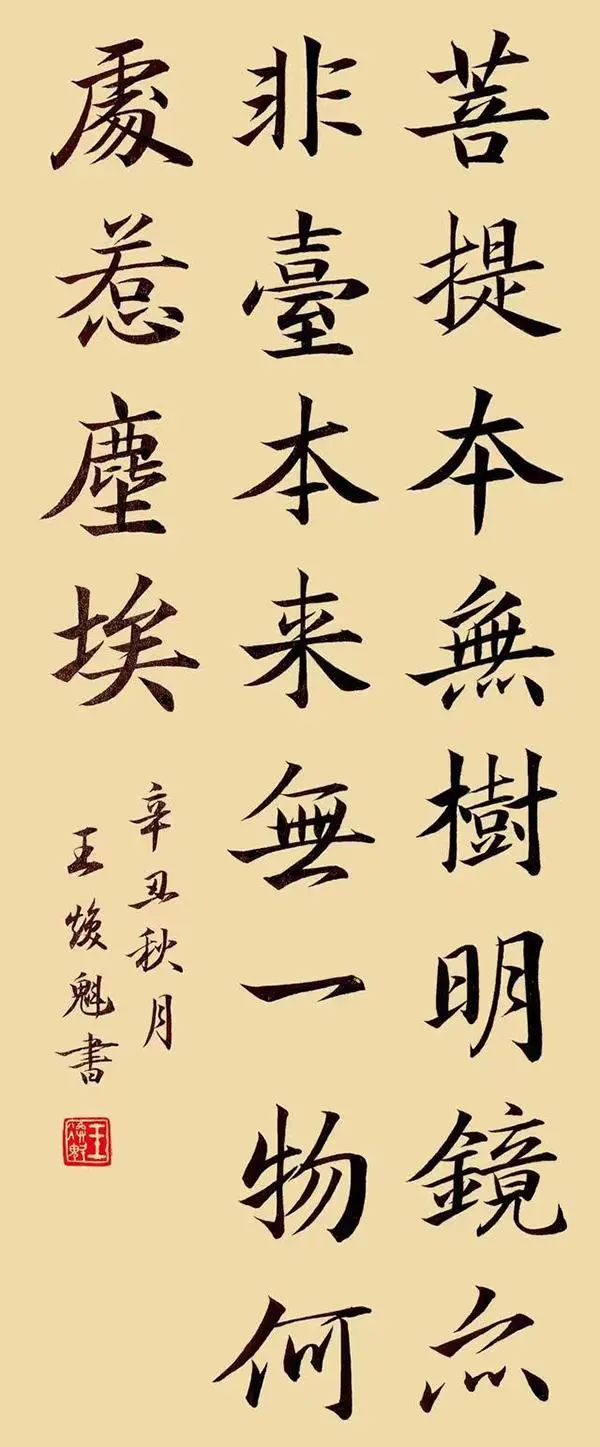 菩提夲無樹明鏡亦
非臺本来無一物何
處惹塵埃
辛丑秋月
王焕魁書